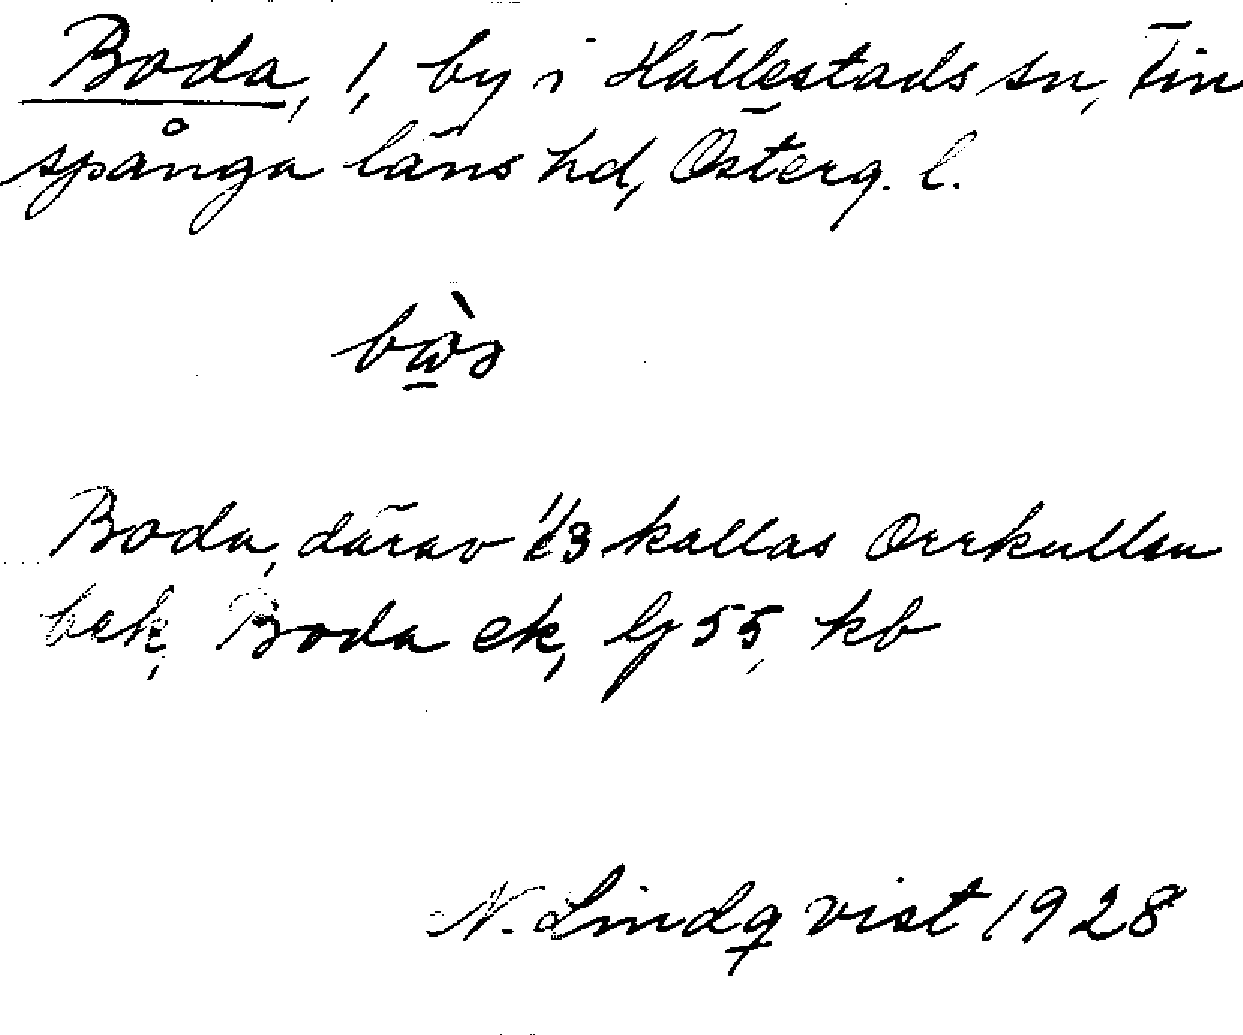 Boda, 1, by i Hällestads sn, Fin
spånga läns hd, Österg. l.
Boda, därav 1/3 kallas Orrkullen
bek, Boda ek, Gj 55, kb
N. Lindqvist 1928